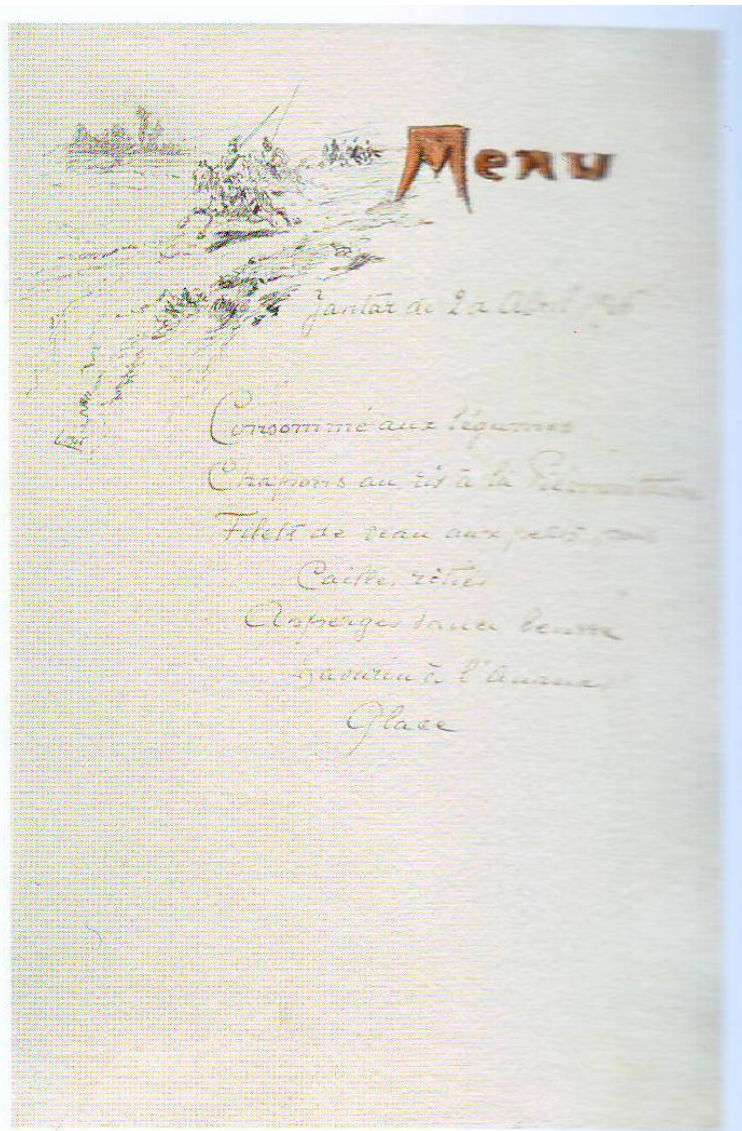 Menu
Jantar de 2 a Abril
Consommé aux légumes
Chapons au ris à la
Filets de veau aux petits
Cailles rôties
Asperges sauce beurre
Savarin à l'Ananas
Glace